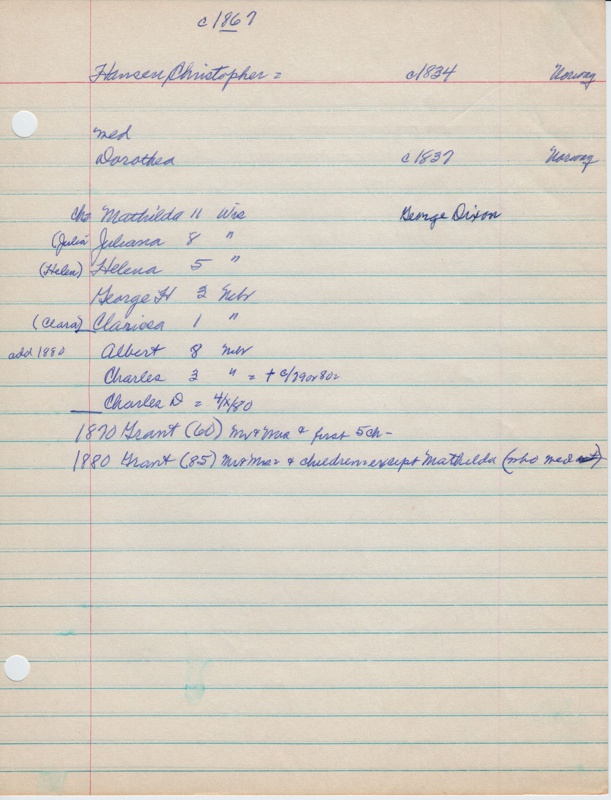 c 1867
Hansen, Christopher = c1834 Norway
med
Dorothea c 1837 Norway
Chs Mathilda 11 Wis George Dixon
(Julia) Juliana 8 "
(Helen) Helena 5 "
George H 3 Nebr
(Clara) Clarissa 1 "
add 1880 Albert 8 Nebr
Charles 3 " = + c/79 or 80=
Charles D = 4/x/80
1870 Grant (60) Mr & Mrs & first 5 ch -
1880 Grant (85) Mr & Mrs & children except Mathilda (who med)